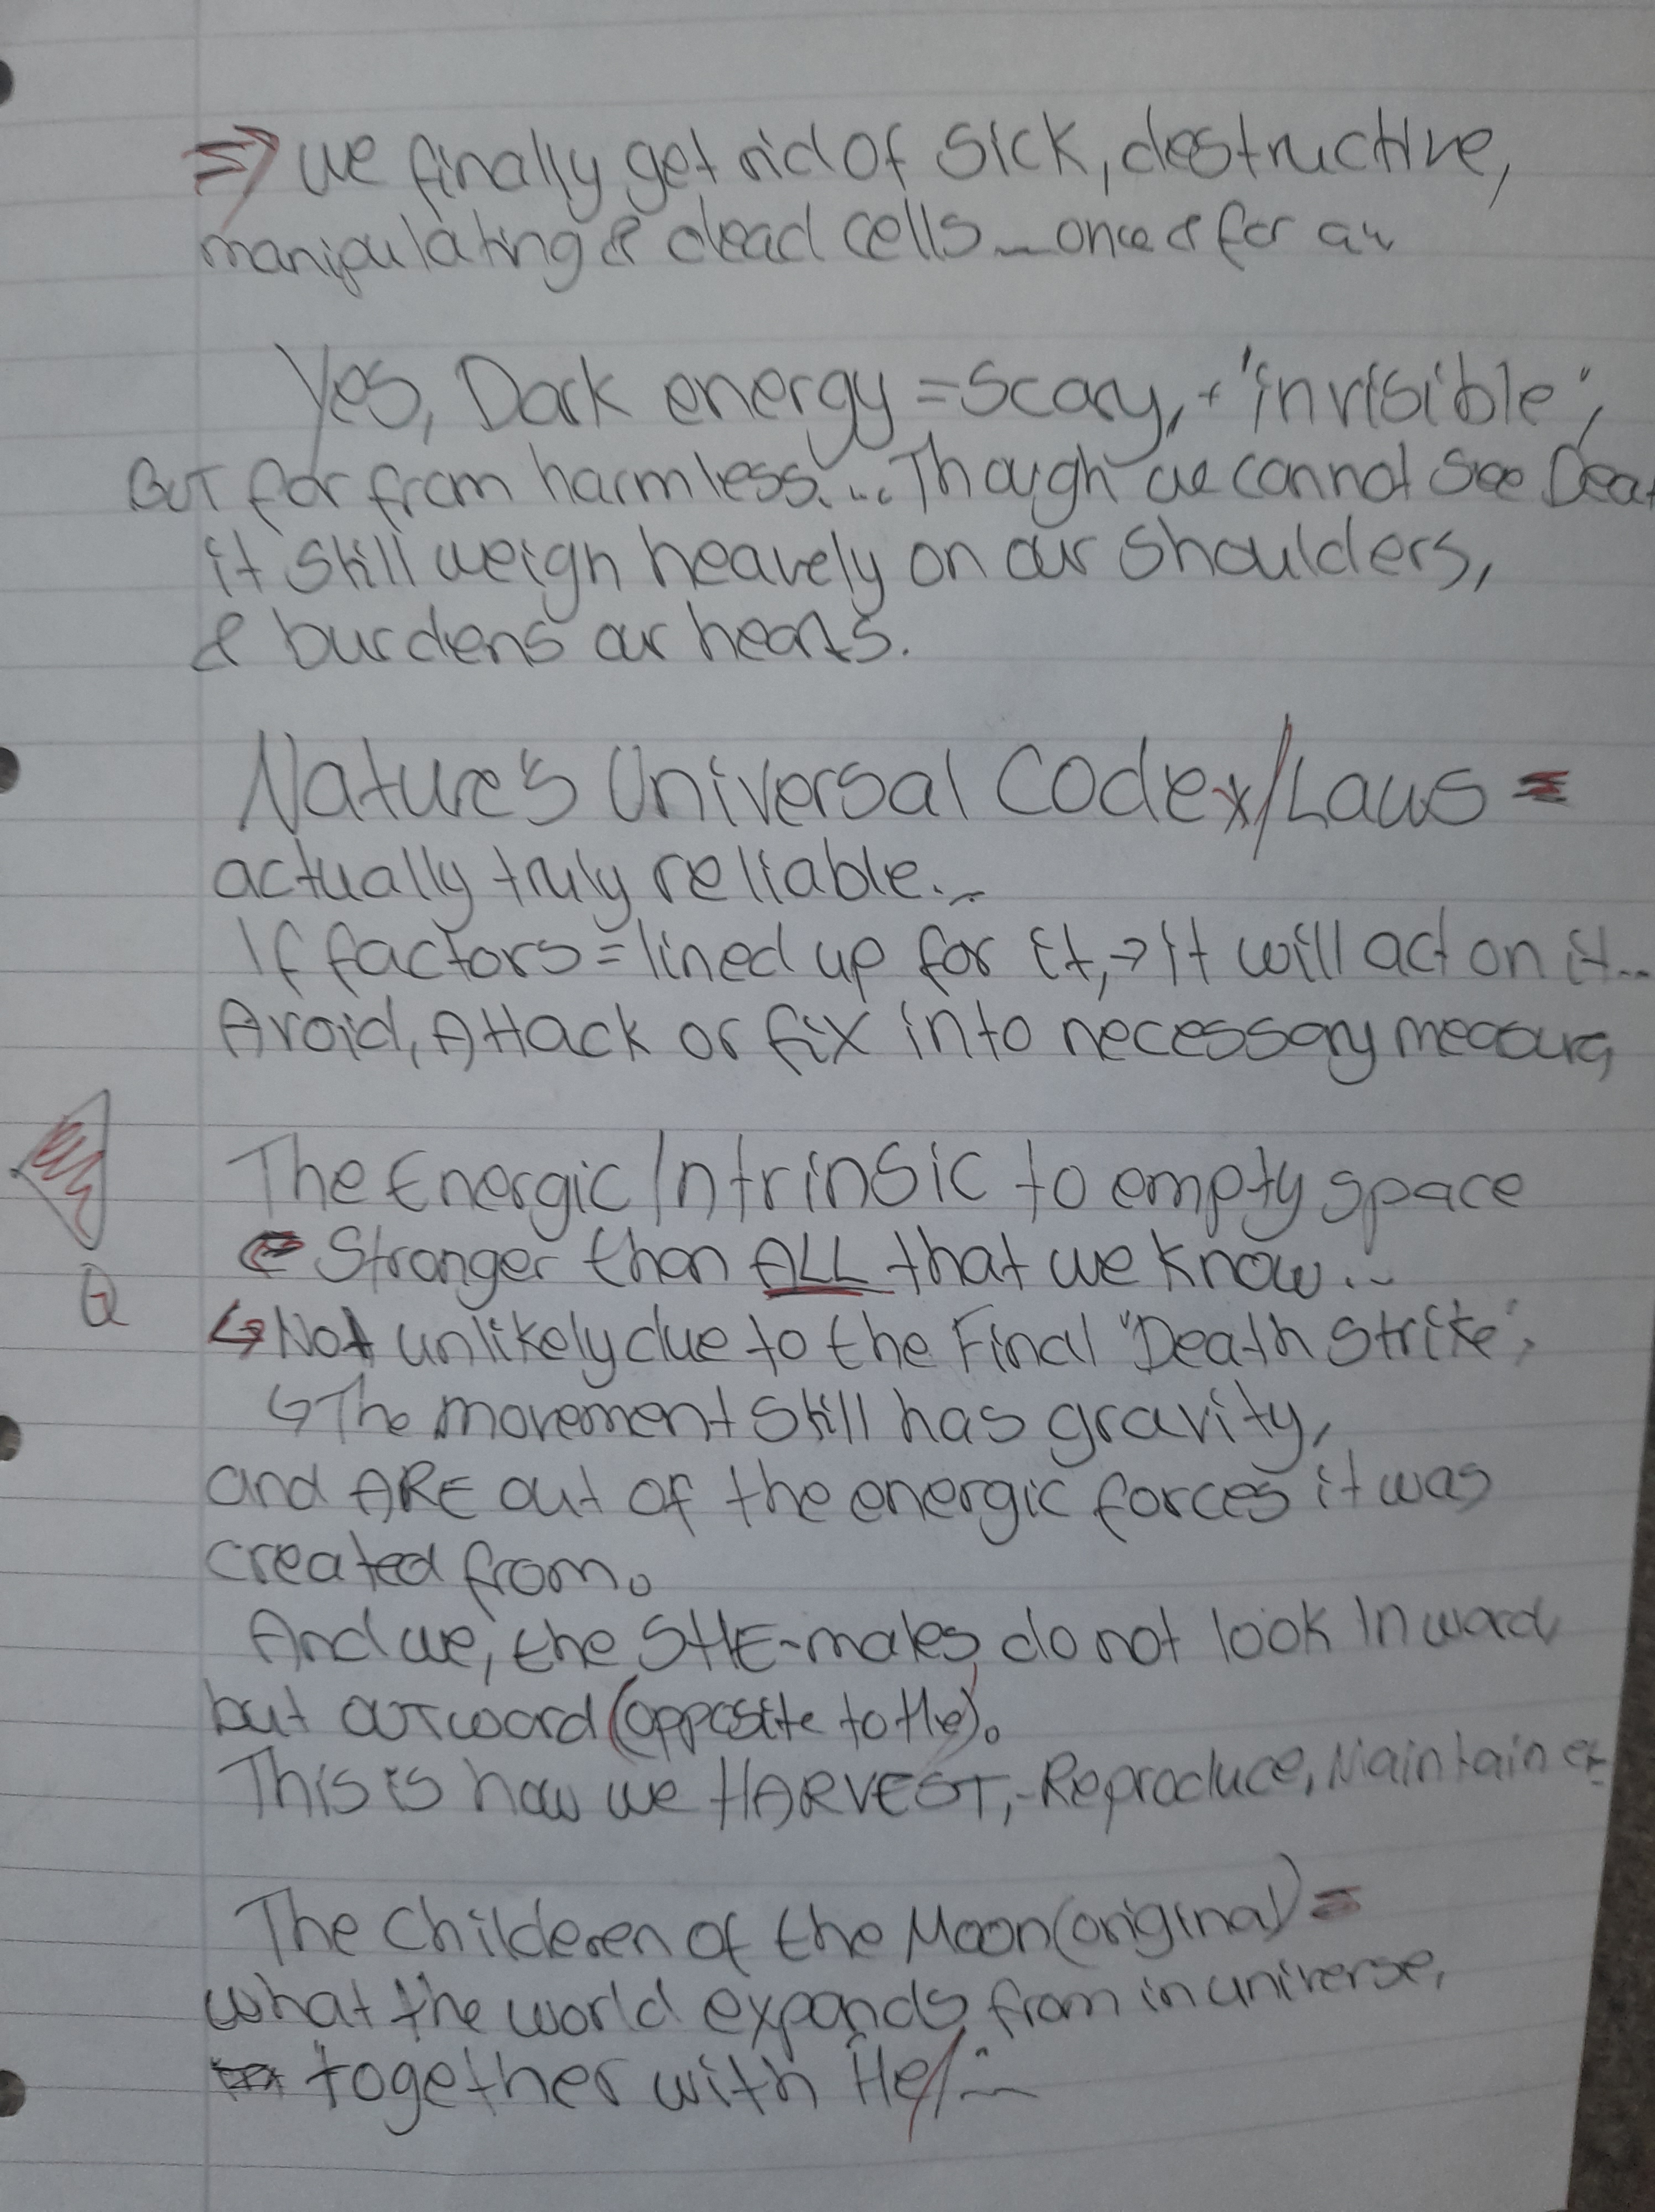 ⇒ we finally get rid of sick, destructive,
manipulating & dead cells... once & for
Yes, Dark energy = Scary, + 'invisible',
BUT far from harmless.... Though we cannot see Deat
it still weigh heavely on our shoulders,
& burdens our hearts.
Nature's Universal Codex/Laws =
actually truly reliable...
If factors = lined up for it, → it will act on it...
Avoid, Attack or fix into necessary
The Energic Intrinsic to empty space
Stronger than ALL that we know...
Q
↳ Not unlikely due to the Final "Death Strike",
↳ The movement still has gravity,
and ARE out of the energic forces it was
created from.
And we, the SHE-males, do not look inward
but outword (opposite to He).
This is how we HARVEST, - Reproduce, Maintain
The Childeren of the Moon (original) =
what the world expands from in universe,
together with He/...